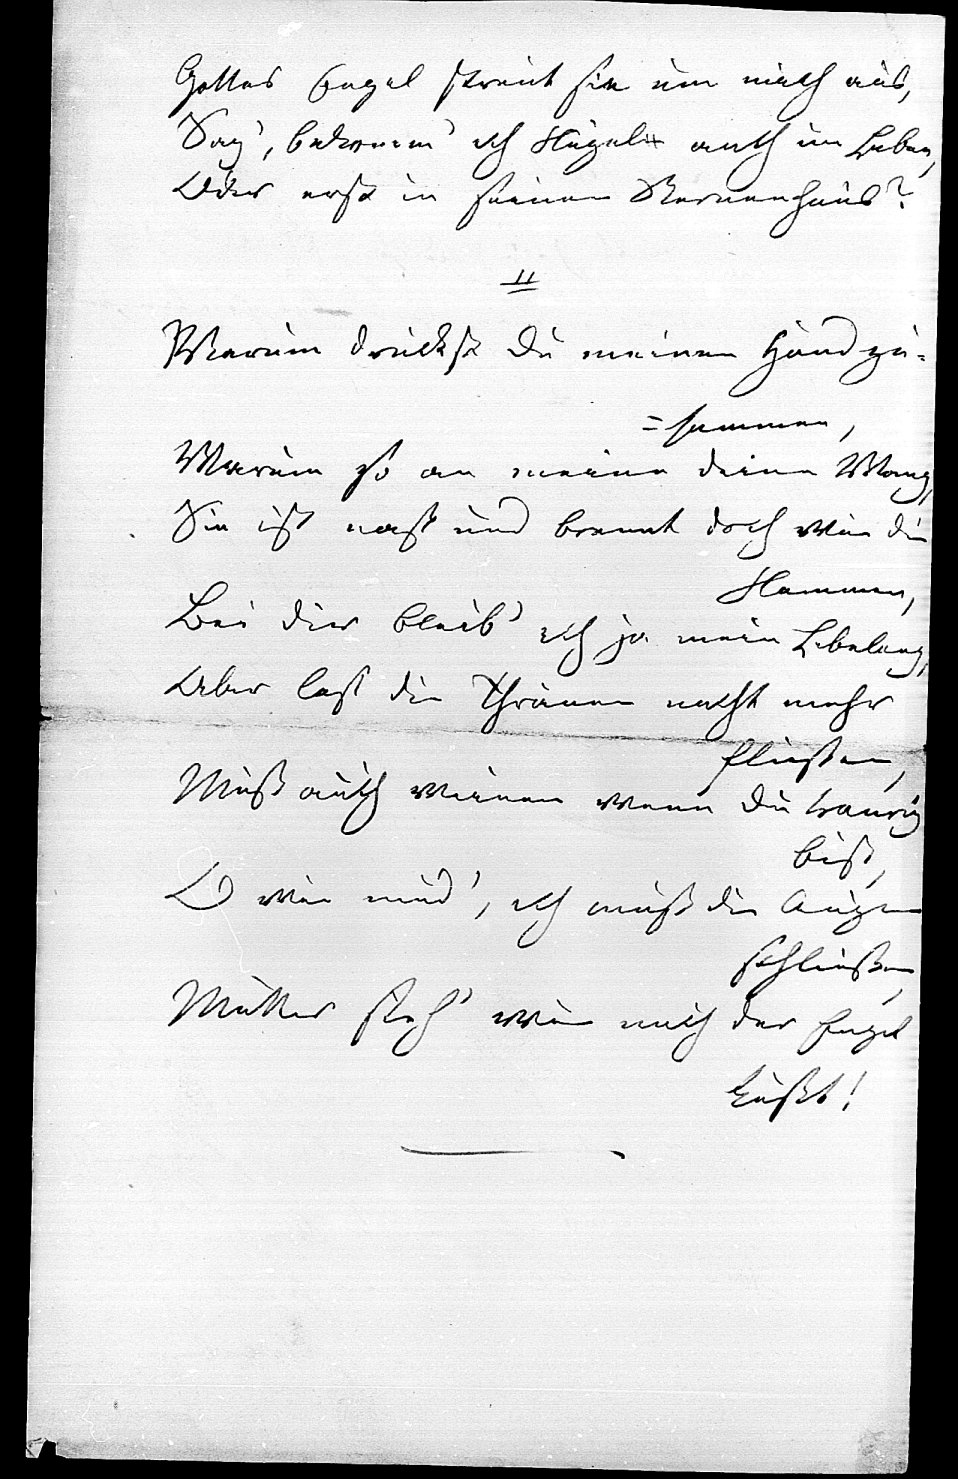 Gottes Engel streut sie um mich aus,
Sag', bekomm' ich Flügel auch im Leben,
Oder erst in seinem Sternenhaus?
=
Warum drückst Du meinen Händ zu=
=sammen,
Warum so an meine deine Wang,
Sie ist nass und brennt doch wie die
Flammen,
Bei dier bleib' ich ja mein Lebelang,
Aber lass die Thränen nicht mehr
fliessen,
Muss auch weinen wenn Du traurig
bist,
O wie müd', ich muss die Augen
schliessen,
Mutter sieh' wie mich der Engel
küsst!